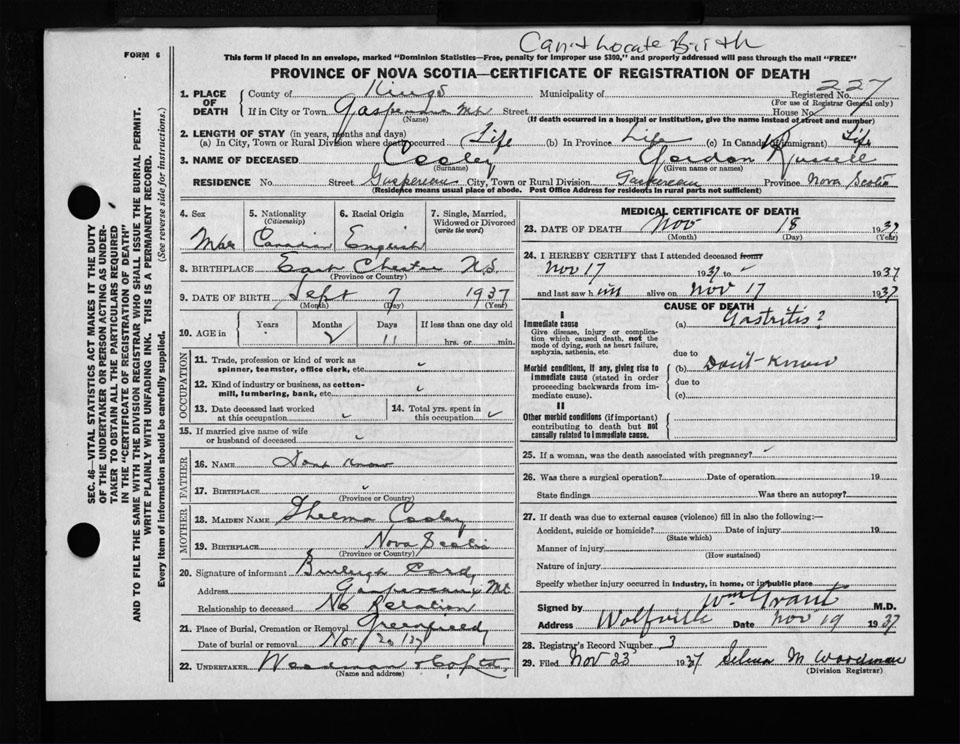 Can't Locate Birth
FORM 6
This form if placed in an envelope, marked "Dominion Statistics—Free, penalty for improper use $300," and properly addressed will pass through the mail "FREE"
PROVINCE OF NOVA SCOTIA—CERTIFICATE OF REGISTRATION OF DEATH
1. PLACE OF DEATH County of Kings Municipality of Registered No. 227
(For use of Registrar General only)
If in City or Town Gaspereau Mt. Street House No.
(Name) (If death occurred in a hospital or institution, give the name instead of street and number)
2. LENGTH OF STAY (in years, months and days)
(a) In City, Town or Rural Division where death occurred Life (b) In Province Life (c) In Canada (if immigrant) Life
3. NAME OF DECEASED Cooley Gordon Russell
(Surname) (Given name or names)
RESIDENCE No. Street Gaspereau City, Town or Rural Division Gaspereau Province Nova Scotia
(Residence means usual place of abode. Post Office Address for residents in rural parts not sufficient)
4. Sex 5. Nationality (Citizenship) 6. Racial Origin 7. Single, Married, Widowed or Divorced (write the word)
Male Canadian English
8. BIRTHPLACE East Chester N.S.
(Province or Country)
9. DATE OF BIRTH Sept 7 1937
(Month) (Day) (Year)
10. AGE in Years Months Days If less than one day old
2 11 hrs. or min.
OCCUPATION
11. Trade, profession or kind of work as spinner, teamster, office clerk, etc.
12. Kind of industry or business, as cotton-mill, lumbering, bank, etc.
13. Date deceased last worked at this occupation
14. Total yrs. spent in this occupation
15. If married give name of wife or husband of deceased
FATHER
16. NAME Dont Know
17. BIRTHPLACE
(Province or Country)
MOTHER
18. MAIDEN NAME Thelma Cooley
19. BIRTHPLACE Nova Scotia
(Province or Country)
20. Signature of informant Burleigh Card
Address Gaspereau Mt
Relationship to deceased No Relation
21. Place of Burial, Cremation or Removal Greenfield
Date of burial or removal Nov 20/37
22. UNDERTAKER Woodman
(Name and address)
MEDICAL CERTIFICATE OF DEATH
23. DATE OF DEATH Nov 18 1937
(Month) (Day) (Year)
24. I HEREBY CERTIFY that I attended deceased from
Nov 17 1937 to 1937
and last saw him alive on Nov 17 1937
CAUSE OF DEATH
I
Immediate cause (a) Gastritis?
Give disease, injury or complication which caused death, not the mode of dying, such as heart failure, asphyxia, asthenia, etc.
due to
Morbid conditions, if any, giving rise to immediate cause (stated in order proceeding backwards from immediate cause).
(b) Don't Know
due to
(c)
II
Other morbid conditions (if important) contributing to death but not causally related to immediate cause.
25. If a woman, was the death associated with pregnancy?
26. Was there a surgical operation? Date of operation 19
State findings Was there an autopsy?
27. If death was due to external causes (violence) fill in also the following:—
Accident, suicide or homicide? Date of injury 19
(State which)
Manner of injury
(How sustained)
Nature of injury
Specify whether injury occurred in industry, in home, or in public place
Signed by Wm Grant M.D.
Address Wolfville Date Nov 19 1937
28. Registrar's Record Number 3
29. Filed Nov 23 1937 Selina M Woodman
(Division Registrar)
SEC. 46—VITAL STATISTICS ACT MAKES IT THE DUTY
OF THE UNDERTAKER OR PERSON ACTING AS UNDER-
TAKER TO OBTAIN ALL THE PARTICULARS REQUIRED
IN THE "CERTIFICATE OF REGISTRATION OF DEATH"
AND TO FILE THE SAME WITH THE DIVISION REGISTRAR WHO SHALL ISSUE THE BURIAL PERMIT.
WRITE PLAINLY WITH UNFADING INK. THIS IS A PERMANENT RECORD.
Every item of information should be carefully supplied. (See reverse side for instructions.)